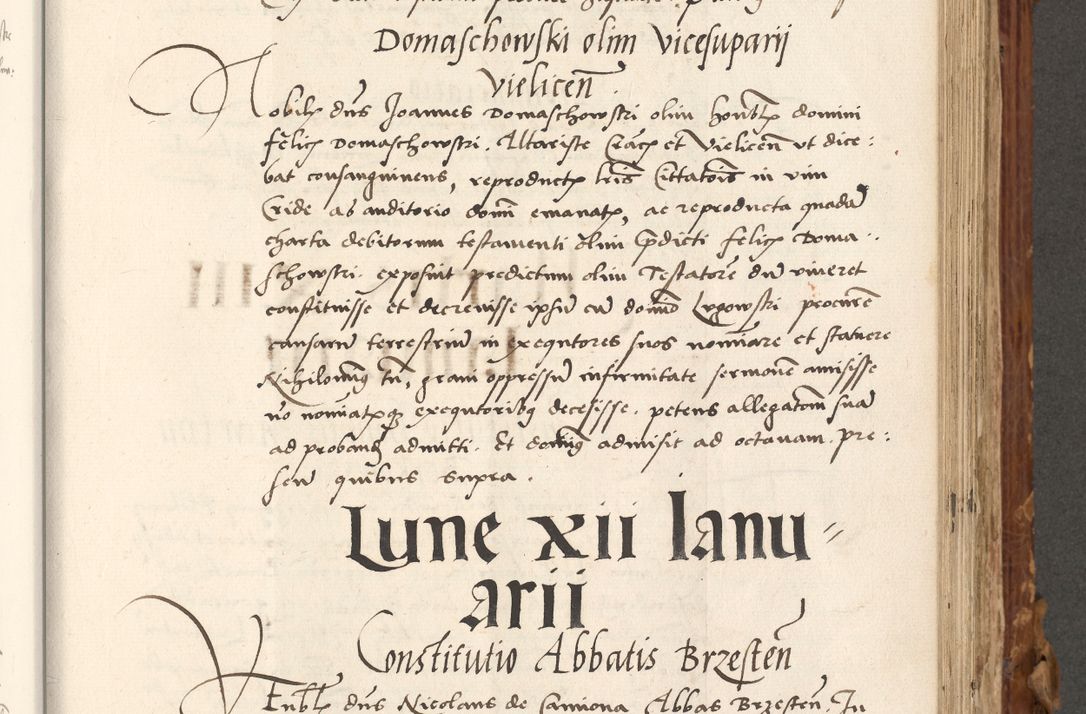 Domaschowski olim vicesuparii
vielicen̄
Nobilꝭ dn̄s Joannes Domaschowski olim honblꝭ domini
felicꝭ Domaschowski. Altariste Craꝭ et vielicen̄ vt dice:
bat consanguineus, reproductꝭ lrīs Citatoīs in vim
Cride ab auditorio domī emanatꝭ, ac reproducta quadā
charta debitorum testamenti olim p̄dicti felicꝭ Doma.
schowski. exposuit predictum olim Testatorē dū viueret
constituisse et decreuisse ipsū cū domīo Lygowski procurē
causarū terrestriū in exequtores suos nomīare et statuere
Nihilomīꝰ tn̄, graui oppressū infirmitate sermonē amisisse
nō nomīatꝭqꝫ exequtoribꝰ decesisse. petens allegatoīm suā
ad probandū admitti. Et domīꝰ admisit ad octauam. pre:
sen̄ quibus supra.
Lune xii Ianu
arii
Constitutio Abbatis Brzesten̄
Venbl̄ꝭ dn̄s Nicolaus de Camiona Abbas Brzesten̄. In